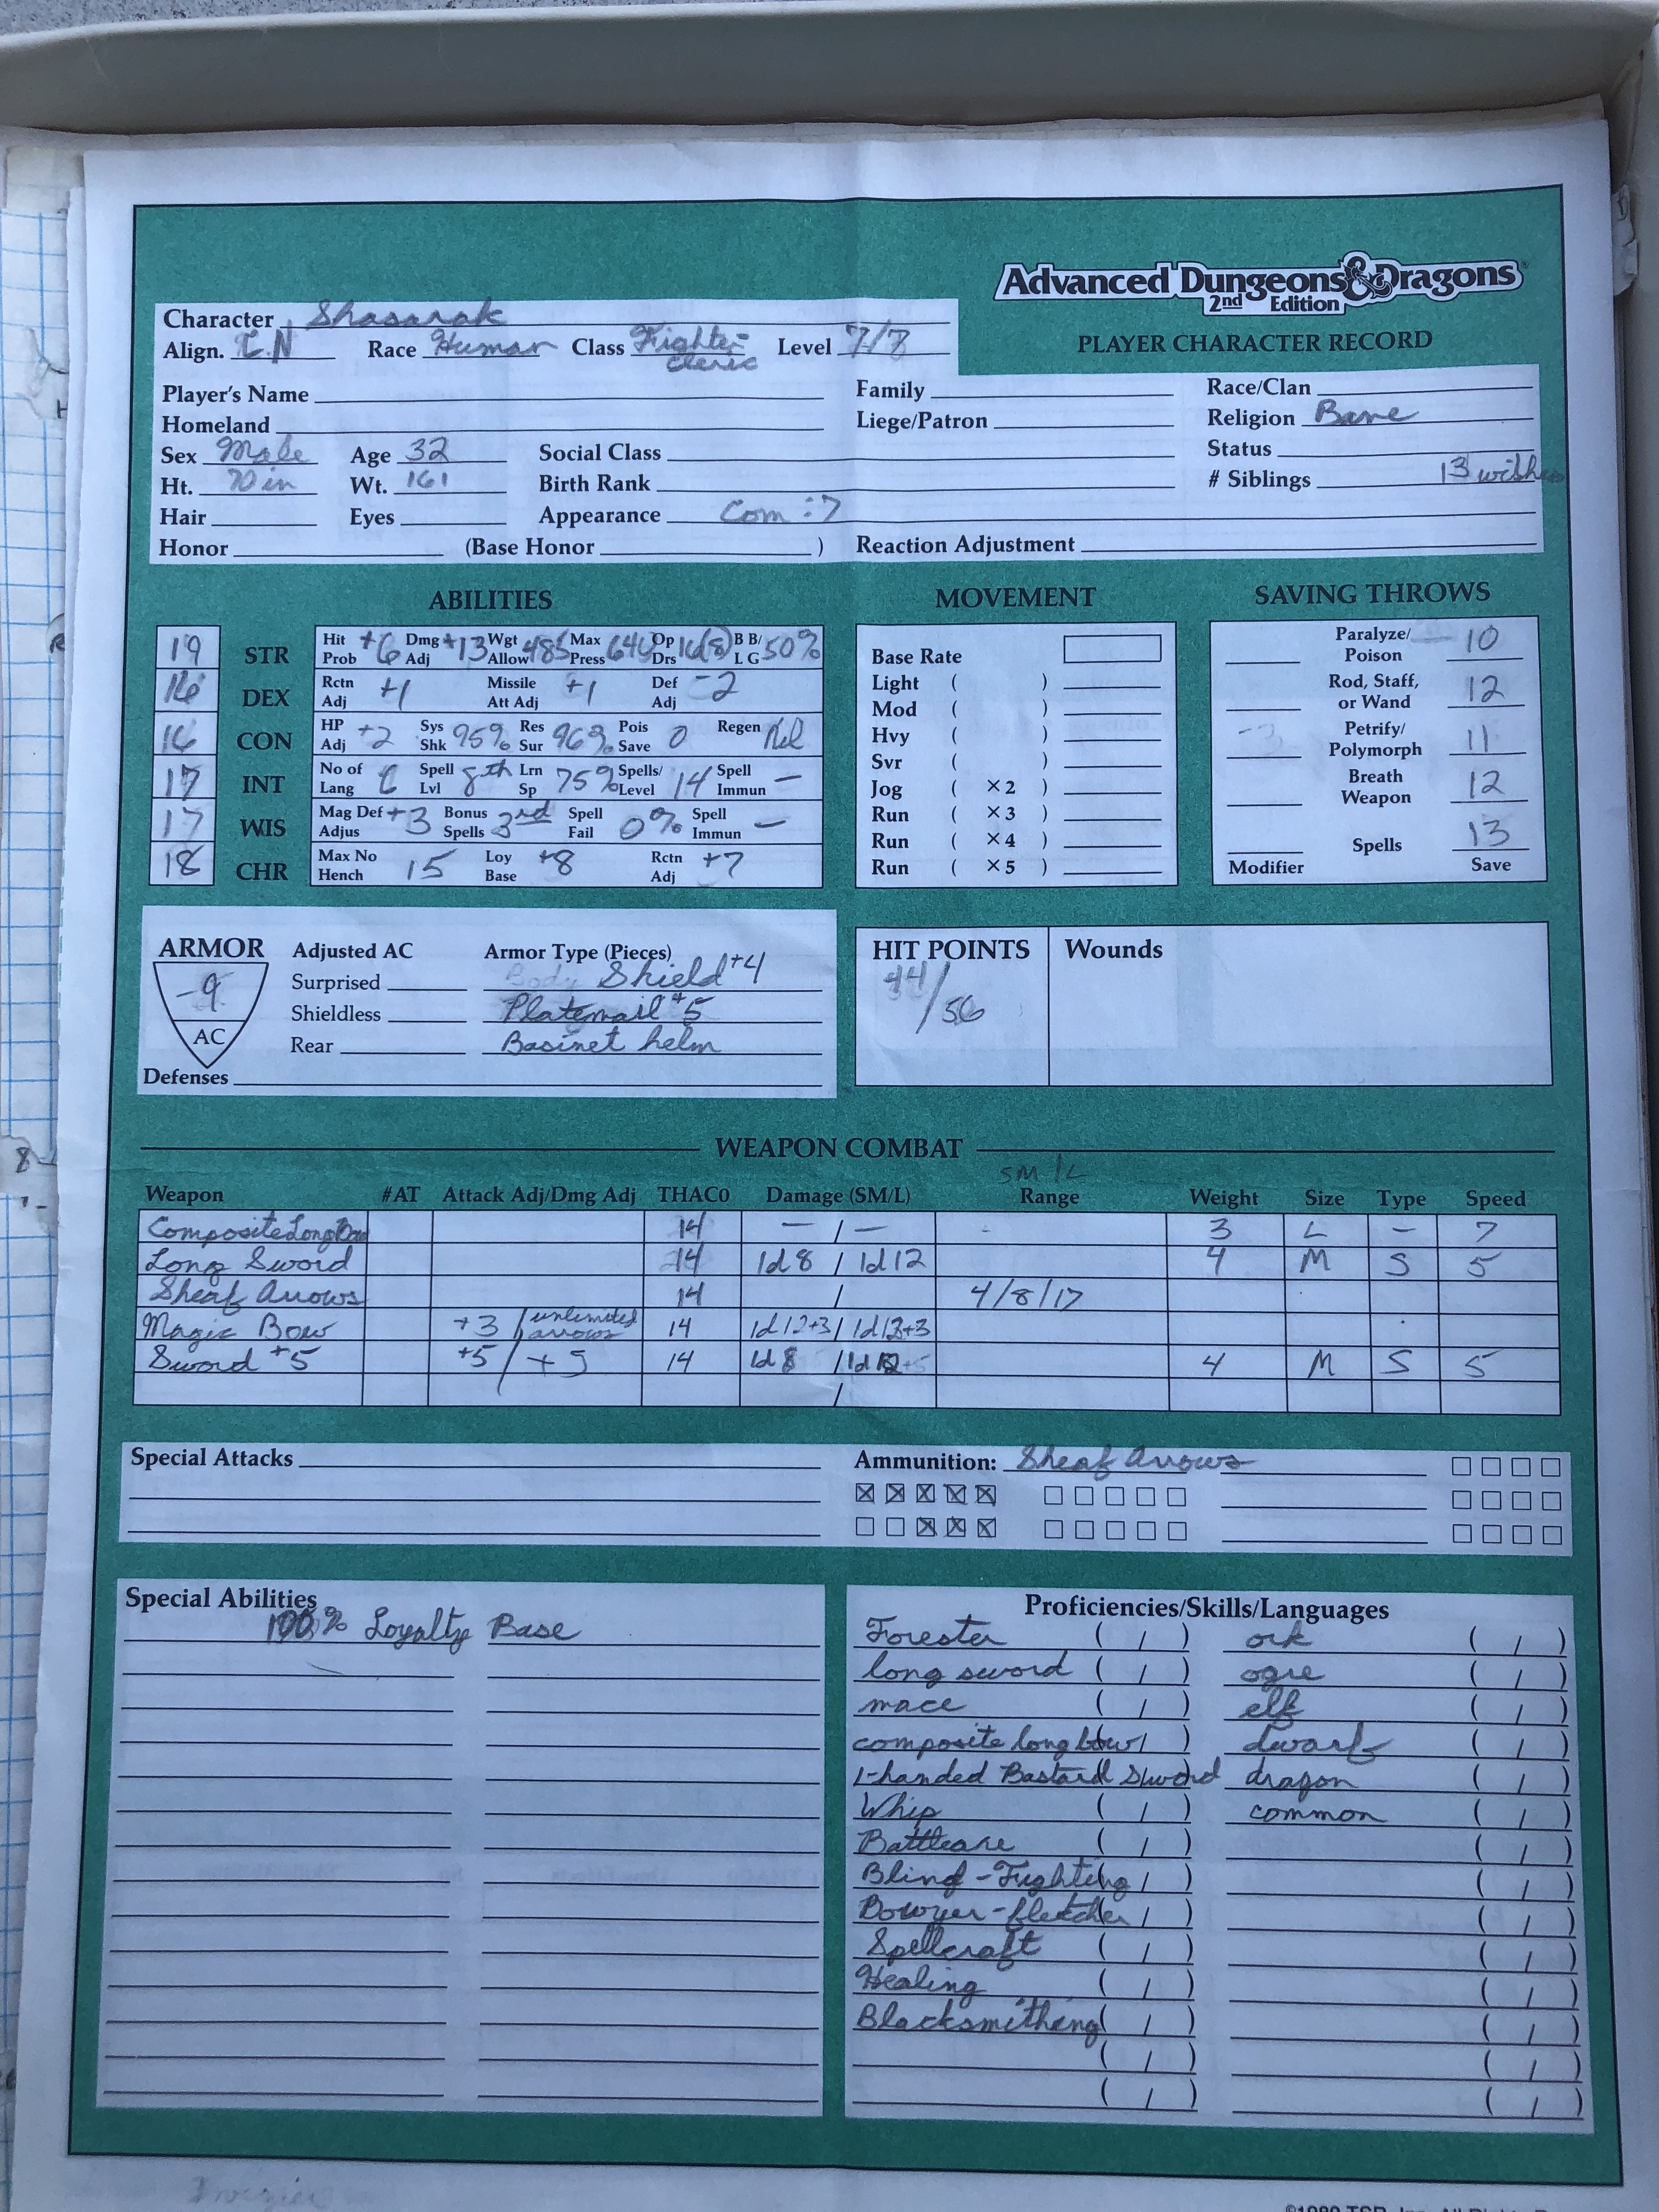 Advanced Dungeons & Dragons
2nd Edition
PLAYER CHARACTER RECORD
Character Shasarak
Align. C.N Race Human Class Fighter-cleric Level 7/8
Player's Name
Family
Race/Clan
Homeland
Liege/Patron
Religion Bane
Sex Male Age 32 Social Class
Status
Ht. 70 in Wt. 161 Birth Rank
# Siblings 13 wishes
Hair Eyes Appearance Com: 7
Honor (Base Honor ) Reaction Adjustment
ABILITIES
19 STR Hit Prob +6 Dmg Adj +13 Wgt Allow 485 Max Press 640 Op Drs 16(8) B B/L G 50%
16 DEX Rctn Adj +1 Missile Att Adj +1 Def Adj -2
16 CON HP Adj +2 Sys Shk 95% Res Sur 96% Pois Save 0 Regen Nil
17 INT No of Lang 6 Spell Lvl 8th Lrn Sp 75% Spells/Level 14 Spell Immun —
17 WIS Mag Def Adjus +3 Bonus Spells 3rd Spell Fail 0% Spell Immun —
18 CHR Max No Hench 15 Loy Base +8 Rctn Adj +7
MOVEMENT
Base Rate
Light ( )
Mod ( )
Hvy ( )
Svr ( )
Jog ( ×2 )
Run ( ×3 )
Run ( ×4 )
Run ( ×5 )
SAVING THROWS
Paralyze/Poison 10
Rod, Staff, or Wand 12
-3 Petrify/Polymorph 11
Breath Weapon 12
Spells 13
Modifier Save
ARMOR Adjusted AC Armor Type (Pieces)
-9 AC
Surprised Body Shield +4
Shieldless Platemail +5
Rear Basinet helm
Defenses
HIT POINTS Wounds
44/56
WEAPON COMBAT
SM/L
Weapon #AT Attack Adj/Dmg Adj THAC0 Damage (SM/L) Range Weight Size Type Speed
Composite Long Bow 14 — / — - 3 L - 7
Long Sword 14 1d8 / 1d12 4 M S 5
Sheaf Arrows 14 / 4/8/17
Magic Bow +3 / unlimited arrows 14 1d12+3 / 1d12+3
Sword +5 +5 / +5 14 1d8 / 1d12 4 M S 5
/
Special Attacks
Ammunition: Sheaf Arrows
Special Abilities
100% Loyalty Base
Proficiencies/Skills/Languages
Forester ( / ) ork ( / )
long sword ( / ) ogre ( / )
mace ( / ) elf ( / )
composite long bow / ) dwarf ( / )
1-handed Bastard Sword dragon ( / )
Whip ( / ) common ( / )
Battleaxe ( / ) ( / )
Blind-Fighting ( / ) ( / )
Bowyer-fletcher ( / ) ( / )
Spellcraft ( / ) ( / )
Healing ( / ) ( / )
Blacksmithing ( / ) ( / )
( / ) ( / )
( / ) ( / )